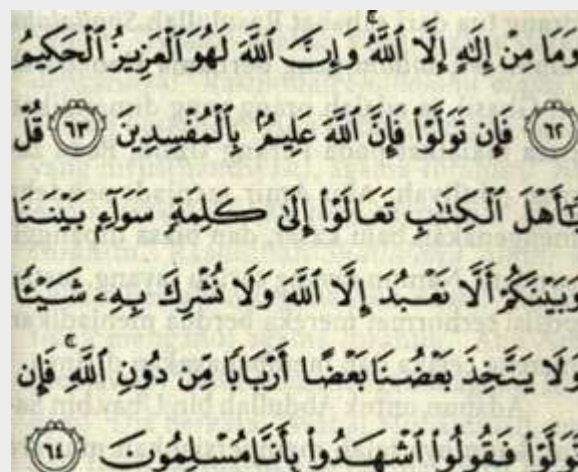 وَمَا مِنْ إِلَٰهٍ إِلَّا ٱللَّهُ ۚ وَإِنَّ ٱللَّهَ لَهُوَ ٱلْعَزِيزُ ٱلْحَكِيمُ
٦٢ فَإِن تَوَلَّوْا۟ فَإِنَّ ٱللَّهَ عَلِيمٌۢ بِٱلْمُفْسِدِينَ ٦٣ قُلْ
يَٰٓأَهْلَ ٱلْكِتَٰبِ تَعَالَوْا۟ إِلَىٰ كَلِمَةٍ سَوَآءٍۭ بَيْنَنَا
وَبَيْنَكُمْ أَلَّا نَعْبُدَ إِلَّا ٱللَّهَ وَلَا نُشْرِكَ بِهِۦ شَيْـًٔا
وَلَا يَتَّخِذَ بَعْضُنَا بَعْضًا أَرْبَابًا مِّن دُونِ ٱللَّهِ ۚ فَإِن
تَوَلَّوْا۟ فَقُولُوا۟ ٱشْهَدُوا۟ بِأَنَّا مُسْلِمُونَ ٦٤